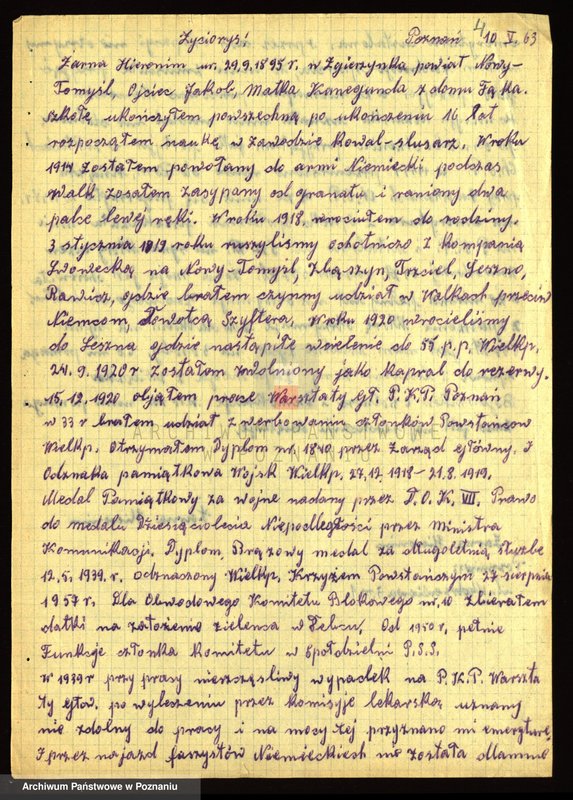 Życiorys! Poznań 10 V. 63
4
Żarna Hieronim ur. 29.9.1895 r. w Zgierzynka powiat Nowy-
Tomyśl, Ojciec Jakob, Matka Kanegunda z domu Fąka.
Szkołę ukończyłem powszechną po ukończeniu 16 Lat
rozpocząłem naukę w zawodzie kowal-slusarz, W roku
1914 zostałem powołany do armi Niemiecki podczas
Walk zosałem zasypany od granatu i raniony dwa
palce lewej ręki. W roku 1918, wrociułem do rodziny.
3 stycznia 1919 roku ruszyliśmy ochotniczo z kompanią
Lwowecką na Nowy-Tomyśl, Zbąszyn, Trzciel, Leszno,
Rawicz, gdzie brałem czynny udział w Walkach przeciw
Niemcom, Dowotcą Szyftera, W roku 1920 wrocieliśmy
do Leszna gdzie nastąpiłe wcielenie do 55 p.p. Wielkp.
24. 9. 1920 r zostałem zwolniony jako kapral do rezerwy.
15. 12. 1920 objąłem prace Warsztaty Gł. P.K.P. Poznań
w 33 r brałem udział z werbowaniu członków Powstańcow
Wielkp. Otrzymałem Dyplom nr. 1840 przez Zarząd główny. I
Odznaka pamiątkowa Wojsk Wielkp. 27.12. 1918 - 21.8. 1919.
Medal Pamiątkowy za wojne nadany przez D.O.K. VII. Prawo
do medalu Dziesięciolecia Niepodległości przez Ministra
Komunikacji. Dyplom, Brązowy medal za długoletnią służbe
12. 5. 1939. r. odznaczony Wielkp. Krzyżem Powstańczym 27 sierpnia
1957 r. Dla Obwodowego Komitetu Blokowego nr. 10 Zbierałem
datki na założenie zielenca w Dębcu, Od 1950 r. pełnie
Funkcje członka komitetu w Społdzielni P.S.S.
W 1939 r przy prasy nieszczęsliwy wypadek na P.K.P. Warszta
ty głów. po wyleczeniu przez komisyje lekarską uznany
nie zdolny do pracy i na mocy tej przyznano mi emeryturę,
I przez najazd faszystów Niemieckiech nie została
Archiwum Państwowe w Poznaniu